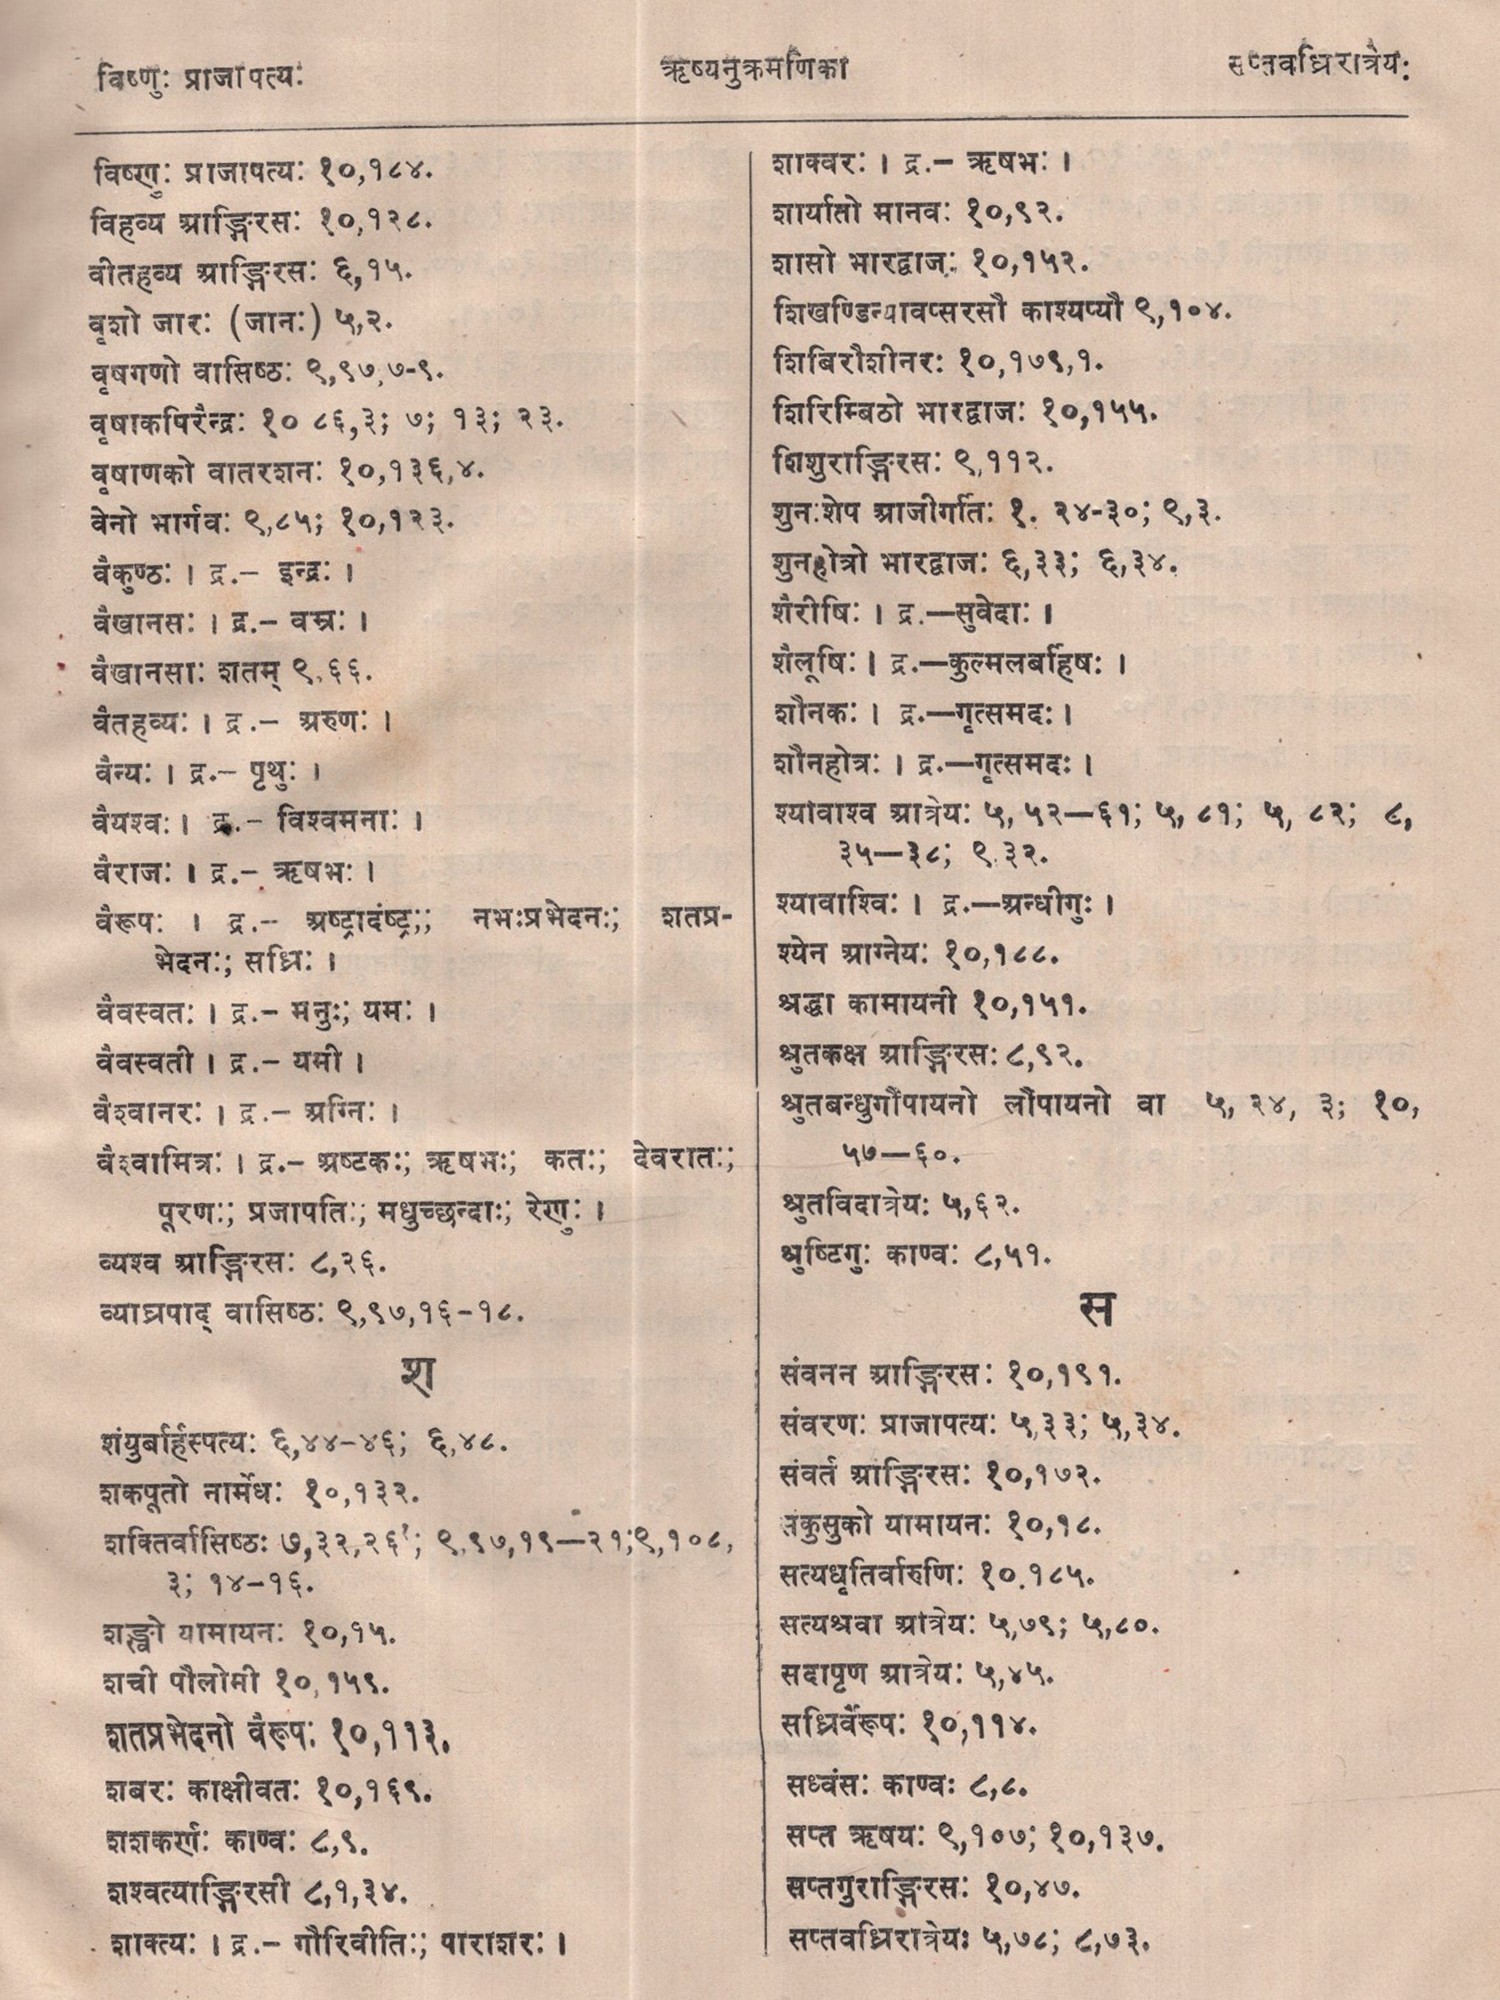 विष्णुः प्राजापत्यः ऋष्यनुक्रमणिका सप्तवध्रिरात्रेयः
विष्णुः प्राजापत्यः १०,१८४.
विहव्य आङ्गिरसः १०,१२८.
वीतहव्य आङ्गिरसः ६,१५.
वृशो जारः (जानः) ५,२.
वृषगणो वासिष्ठः ९,९७,७-९.
वृषाकपिरैन्द्रः १० ८६,३; ७; १३; २३.
वृषाणको वातरशनः १०,१३६,४.
वेनो भार्गवः ९,८५; १०,१२३.
वैकुण्ठः । द्र.– इन्द्रः ।
वैखानसः । द्र.– वम्रः ।
वैखानसाः शतम् ९,६६.
वैतहव्यः । द्र.– अरुणः ।
वैन्यः । द्र.– पृथुः ।
वैयश्वः । द्र.– विश्वमनाः ।
वैराजः । द्र.– ऋषभः ।
वैरूपः । द्र.– अष्ट्रादंष्ट्रः; नभःप्रभेदनः; शतप्र-
भेदनः; सध्रिः ।
वैवस्वतः । द्र.– मनुः; यमः ।
वैवस्वती । द्र.– यमी ।
वैश्वानरः । द्र.– अग्निः ।
वैश्वामित्रः । द्र.– अष्टकः; ऋषभः; कतः; देवरातः;
पूरणः; प्रजापतिः; मधुच्छन्दाः; रेणुः ।
व्यश्व आङ्गिरसः ८,२६.
व्याघ्रपाद् वासिष्ठः ९,९७,१६–१८.
श
शंयुर्बार्हस्पत्यः ६,४४–४६; ६,४८.
शकपूतो नार्मेधः १०,१३२.
शक्तिर्वासिष्ठः ७,३२,२६'; ९,९७,१९—२१;९,१०८,
३; १४–१६.
शङ्खो यामायनः १०,१५.
शची पौलोमी १०,१५९.
शतप्रभेदनो वैरूपः १०,११३.
शबरः काक्षीवतः १०,१६९.
शशकर्णः काण्वः ८,९.
शश्वत्याङ्गिरसी ८,१,३४.
शाक्त्यः । द्र.– गौरिवीतिः; पाराशरः ।
शाक्वरः । द्र.– ऋषभः ।
शार्यातो मानवः १०,९२.
शासो भारद्वाजः १०,१५२.
शिखण्डिन्यावप्सरसौ काश्यप्यौ ९,१०४.
शिबिरौशीनरः १०,१७९,१.
शिरिम्बिठो भारद्वाजः १०,१५५.
शिशुराङ्गिरसः ९,११२.
शुनःशेप आजीगर्तिः १. २४-३०; ९,३.
शुनहोत्रो भारद्वाजः ६,३३; ६,३४.
शैरीषिः । द्र.—सुवेदाः ।
शैलूषिः । द्र.—कुल्मलबर्हिषः ।
शौनकः । द्र.—गृत्समदः ।
शौनहोत्रः । द्र.—गृत्समदः ।
श्यावाश्व आत्रेयः ५, ५२—६१; ५, ८१; ५, ८२; ८,
३५—३८; ९,३२.
श्यावाश्विः । द्र.—अन्धीगुः ।
श्येन आग्नेयः १०,१८८.
श्रद्धा कामायनी १०,१५१.
श्रुतकक्ष आङ्गिरसः ८,९२.
श्रुतबन्धुर्गौपायनो लौपायनो वा ५, २४, ३; १०,
५७—६०.
श्रुतविदात्रेयः ५,६२.
श्रुष्टिगुः काण्वः ८,५१.
स
संवनन आङ्गिरसः १०,१९१.
संवरणः प्राजापत्यः ५,३३; ५,३४.
संवर्त आङ्गिरसः १०,१७२.
संकुसुको यामायनः १०,१८.
सत्यधृतिर्वारुणिः १०,१८५.
सत्यश्रवा आत्रेयः ५,७९; ५,८०.
सदापृण आत्रेयः ५,४५.
सध्रिर्वैरूपः १०,११४.
सध्वंसः काण्वः ८,८.
सप्त ऋषयः ९,१०७; १०,१३७.
सप्तगुराङ्गिरसः १०,४७.
सप्तवध्रिरात्रेयः ५,७८; ८,७३.